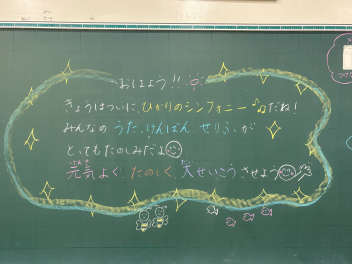 おはよう!!
きょうはついに、ひかりのシンフォニー♪♫だね!
みんなの うた、けんばん、せりふ、が
とってもたのしみだよ
元気よく、たのしく、大せいこうさせよう